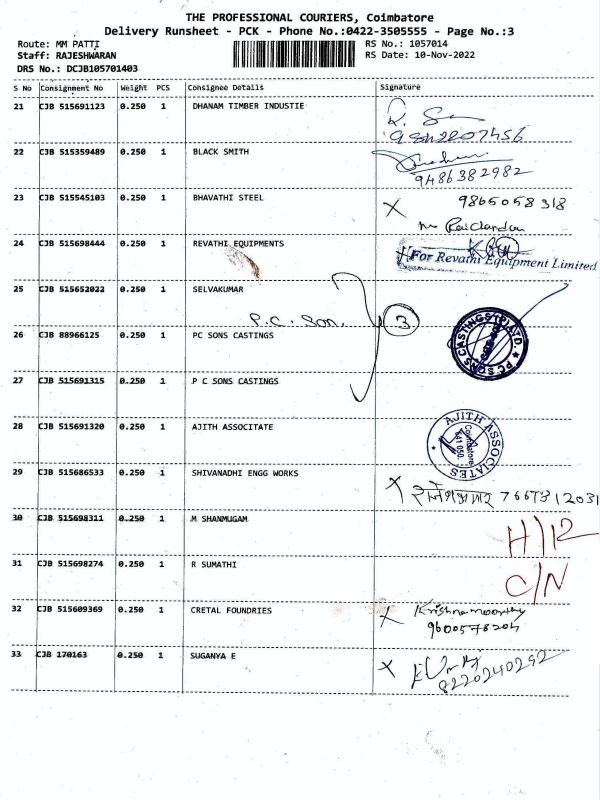 THE PROFESSIONAL COURIERS, Coimbatore
Delivery Runsheet - PCK - Phone No.:0422-3505555 - Page No.:3
Route: MM PATTI RS No.: 1057014
Staff: RAJESHWARAN RS Date: 10-Nov-2022
DRS No.: DCJB105701403
S No Consignment No Weight PCS Consignee Details Signature
21 CJB 515691123 0.250 1 DHANAM TIMBER INDUSTIE
22 CJB 515359489 0.250 1 BLACK SMITH
9486382982
23 CJB 515545103 0.250 1 BHAVATHI STEEL 9865058318
24 CJB 515698444 0.250 1 REVATHI EQUIPMENTS
For Revathi Equipment Limited
25 CJB 515652022 0.250 1 SELVAKUMAR
P.C. Son. 3
26 CJB 88966125 0.250 1 PC SONS CASTINGS
PC SONS CASTINGS (P) LTD.
27 CJB 515691315 0.250 1 P C SONS CASTINGS
28 CJB 515691320 0.250 1 AJITH ASSOCITATE
AJITH ASSOCIATES
Coimbatore
641 050.
29 CJB 515686533 0.250 1 SHIVANADHI ENGG WORKS
30 CJB 515698311 0.250 1 M SHANMUGAM
31 CJB 515698274 0.250 1 R SUMATHI
C/N
32 CJB 515609369 0.250 1 CRETAL FOUNDRIES Krishnamoorthy
9600578204
33 CJB 170163 0.250 1 SUGANYA E
8220240292